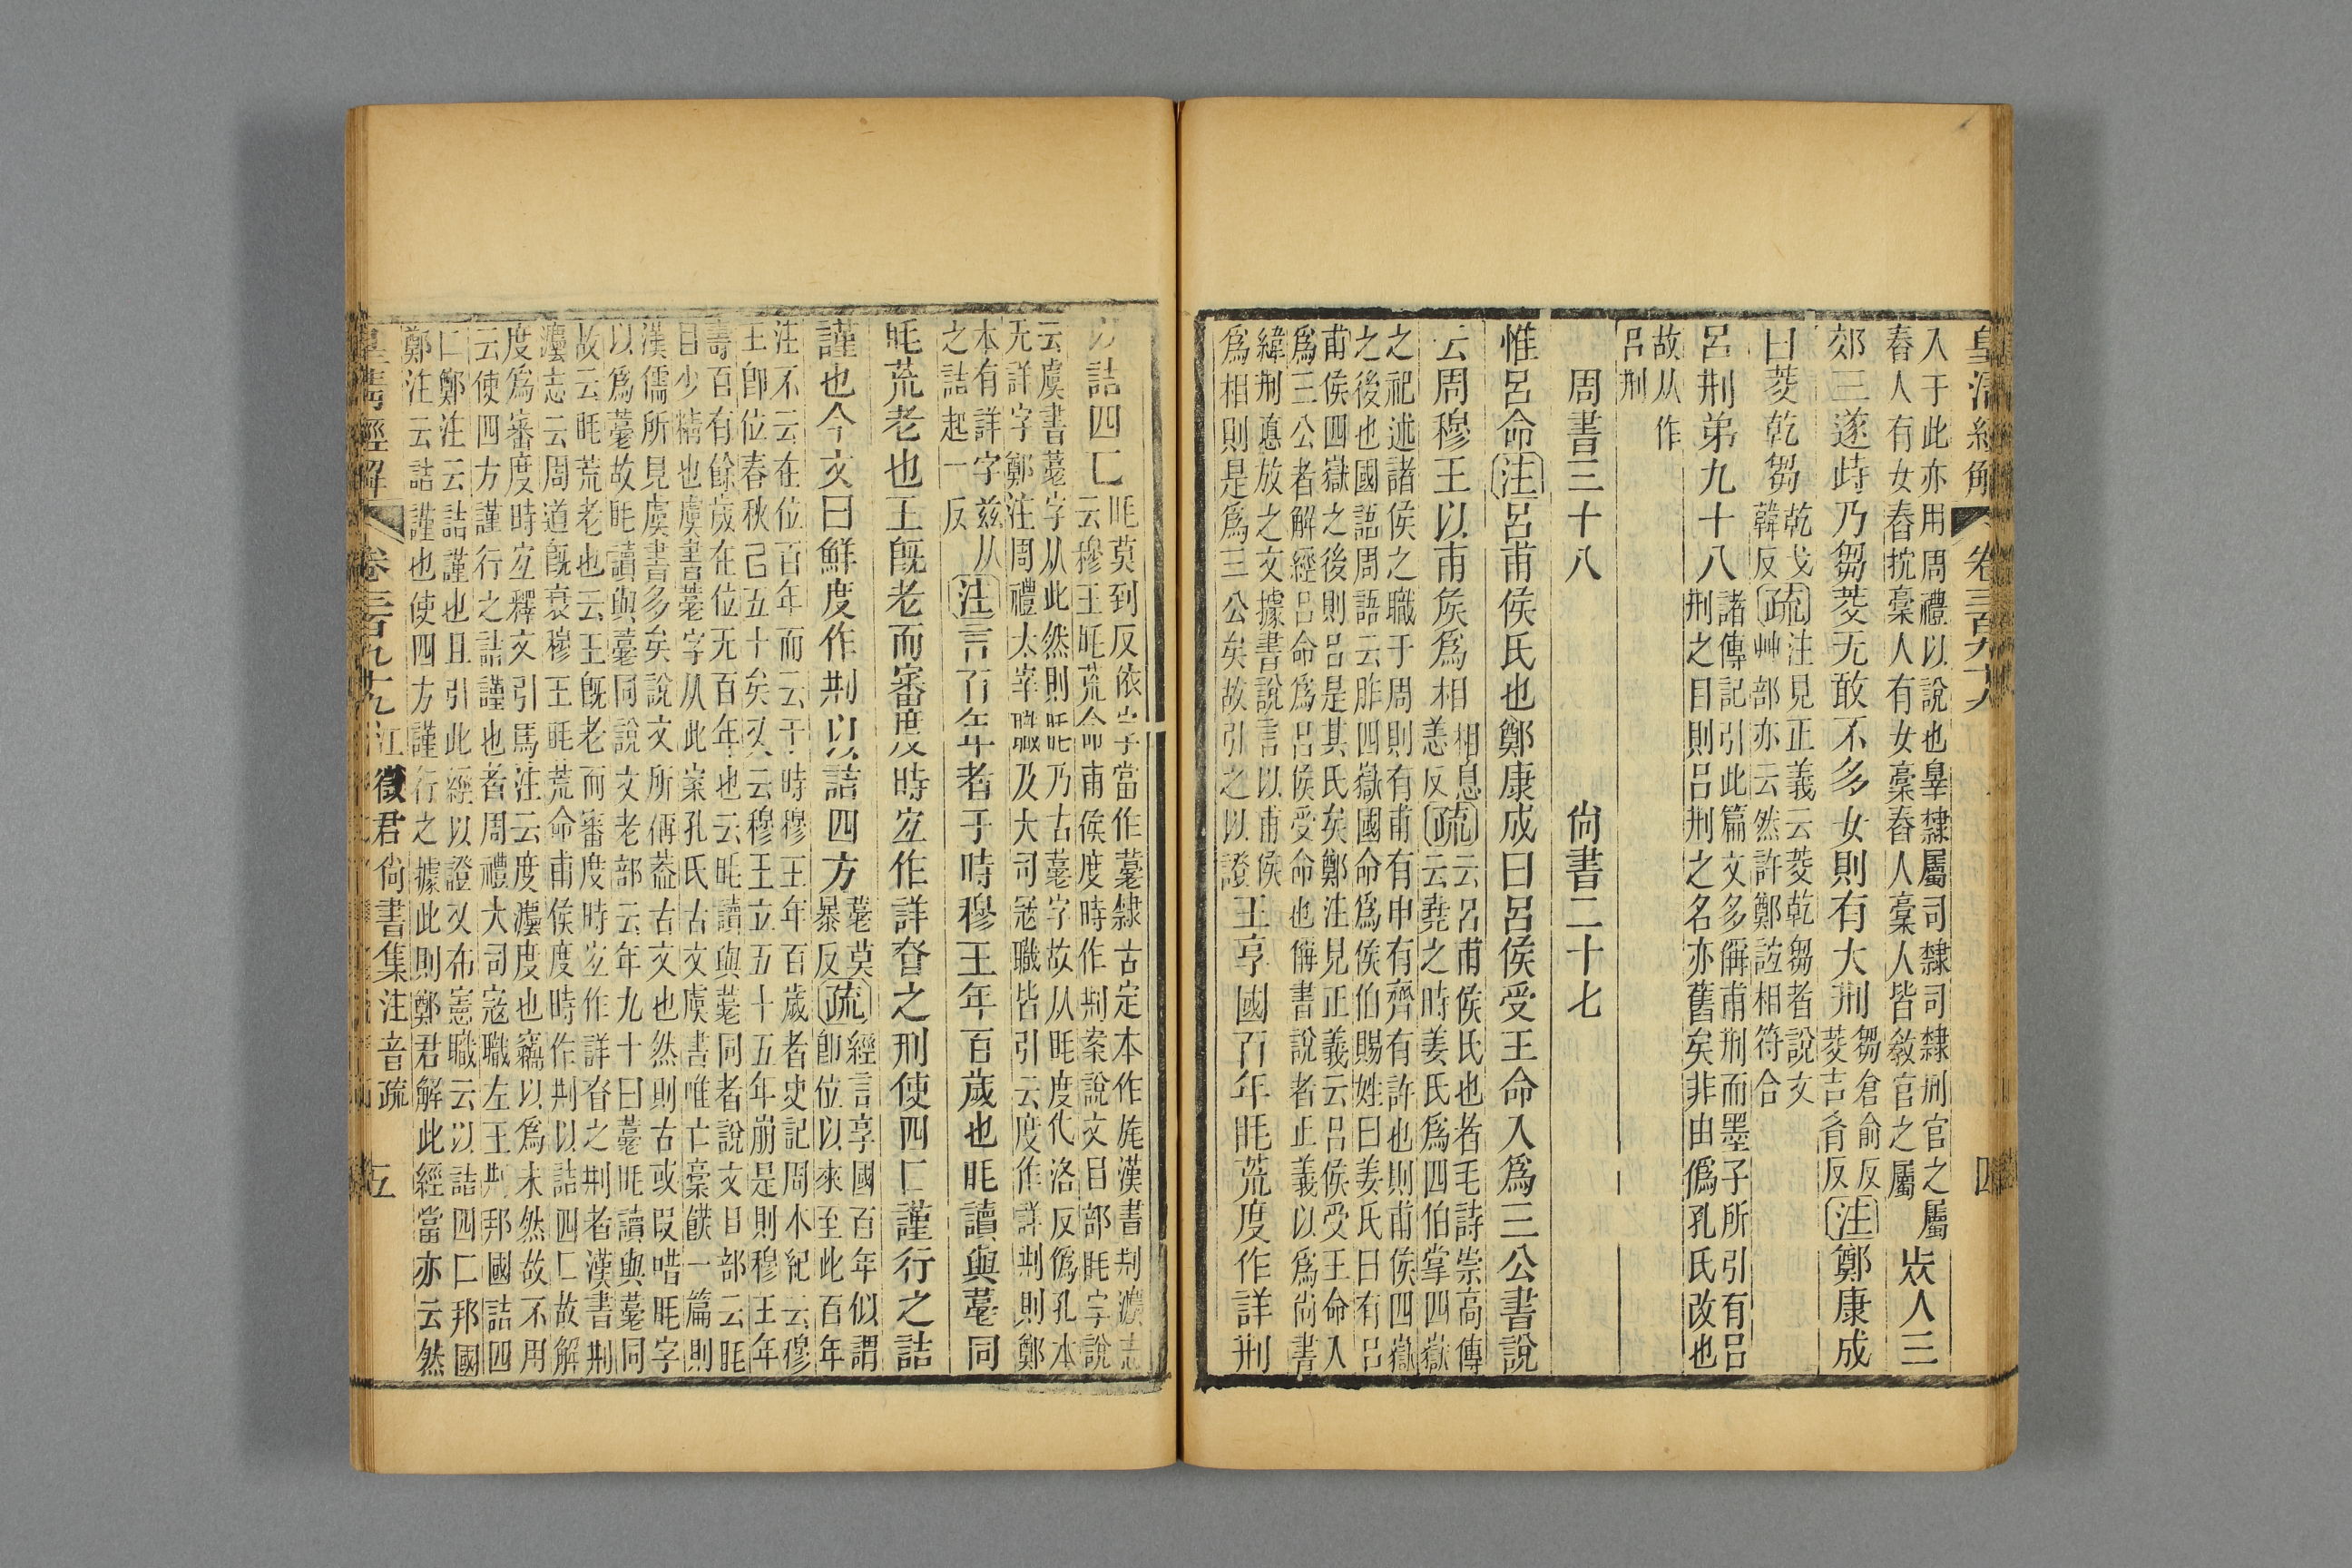 皇清經解 卷三百九十八 四
入于此亦用周禮以說也皋隸屬司隸司隸刑官之屬
舂人有女舂抗稾人有女稾舂人稾人皆敘官之屬
人三
郊三遂峙乃芻茭无敢不多女則有大刑
芻倉俞反
茭吉肴反
注鄭康成
曰茭乾芻
乾戈
韓反
疏
注見正義云茭乾芻者說文
艸部亦云然許鄭誼相符合
呂刑弟九十八
諸傳記引此篇文多偁甫刑而墨子所引有呂
刑之目則呂刑之名亦舊矣非由僞孔氏改也
故从作
呂刑
周書三十八 尙書二十七
惟呂命注呂甫侯氏也鄭康成曰呂侯受王命入爲三公書說
云周穆王以甫矦爲相
相息
恙反
疏
云呂甫侯氏也者毛詩崇高傳
云堯之時姜氏爲四伯掌四嶽
之祀述諸侯之職于周則有甫有申有齊有許也則甫侯四嶽
之後也國語周語云胙四嶽國命爲侯伯賜姓曰姜氏曰有呂
甫侯四嶽之後則呂是其氏矣鄭注見正義云呂侯受王命入
爲三公者解經呂命爲呂侯受命也偁書說者正義以爲尙書
緯刑悳放之文據書說言以甫侯
爲相則是爲三公矣故引之以證
王享國百年眊荒度作詳刑
以詰四匚
眊莫到反依字當作薹隸古定本作旄漢書刑灋志
云穆王眊荒命甫侯度時作刑案說文目部眊字說
云虞書薹字从此然則眊乃古薹字故从眊度代洛反僞孔本
无詳字鄭注周禮太宰職及大司寇職皆引云度作詳刑則鄭
本有詳字茲从
之詰起一反
注言百年者于時穆王年百歲也眊讀與薹同
眊荒老也王旣老而審度時宜作詳眘之刑使四匚謹行之詰
謹也今文曰鮮度作刑以詰四方
薹莫
暴反
疏
經言享國百年似謂
卽位以來至此百年
注不云在位百年而云于時穆王年百歲者史記周本紀云穆
王卽位春秋已五十矣又云穆王立五十五年崩是則穆王年
壽百有餘歲在位无百年也云眊讀與薹同者說文目部云眊
目少精也虞書薹字从此案孔氏古文虞書唯亡稾飫一篇則
漢儒所見虞書多矣說文所偁葢古文也然則古或叚唶眊字
以爲薹故眊讀與薹同說文老部云年九十曰薹眊讀與薹同
故云眊荒老也云王旣老而審度時宜作詳眘之刑者漢書刑
灋志云周道旣衰穆王眊荒命甫侯度時作刑以詰四匚故解
度爲審度時宜釋文引馬注云度灋度也竊以爲未然故不用
云使四方謹行之詰謹也者周禮大司寇職左王刑邦國詰四
匚鄭注云詰謹也且引此經以證又布憲職云以詰四匚邦國
鄭注云詰謹也使四方謹行之據此則鄭君解此經當亦云然
皇淸經解 卷三百九十九 江徵君尙書集注音疏 五